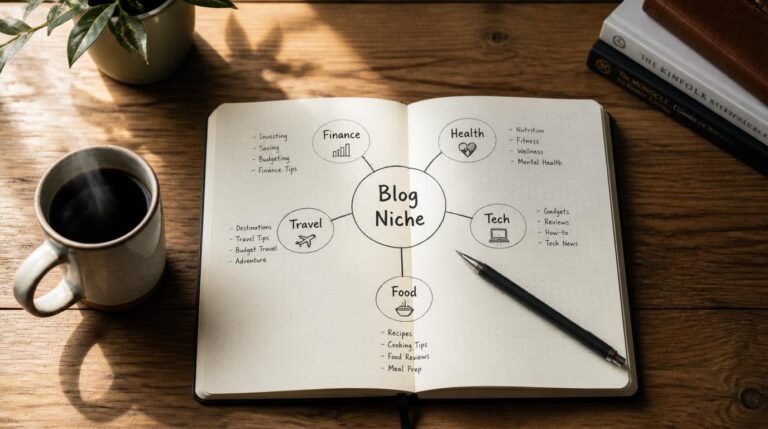 Blog
Niche
Finance
- Investing
- Saving
- Budgeting
- Finance Tips
Health
- Nutrition
- Fitness
- Wellness
- Mental Health
Travel
- Destinations
- Travel Tips
- Budget Travel
- Adventure
Tech
- Gadgets
- Reviews
- How-to
- Tech News
Food
- Recipes
- Cooking Tips
- Food Reviews
- Meal Prep
THE KINFOLK
The MONOCLE